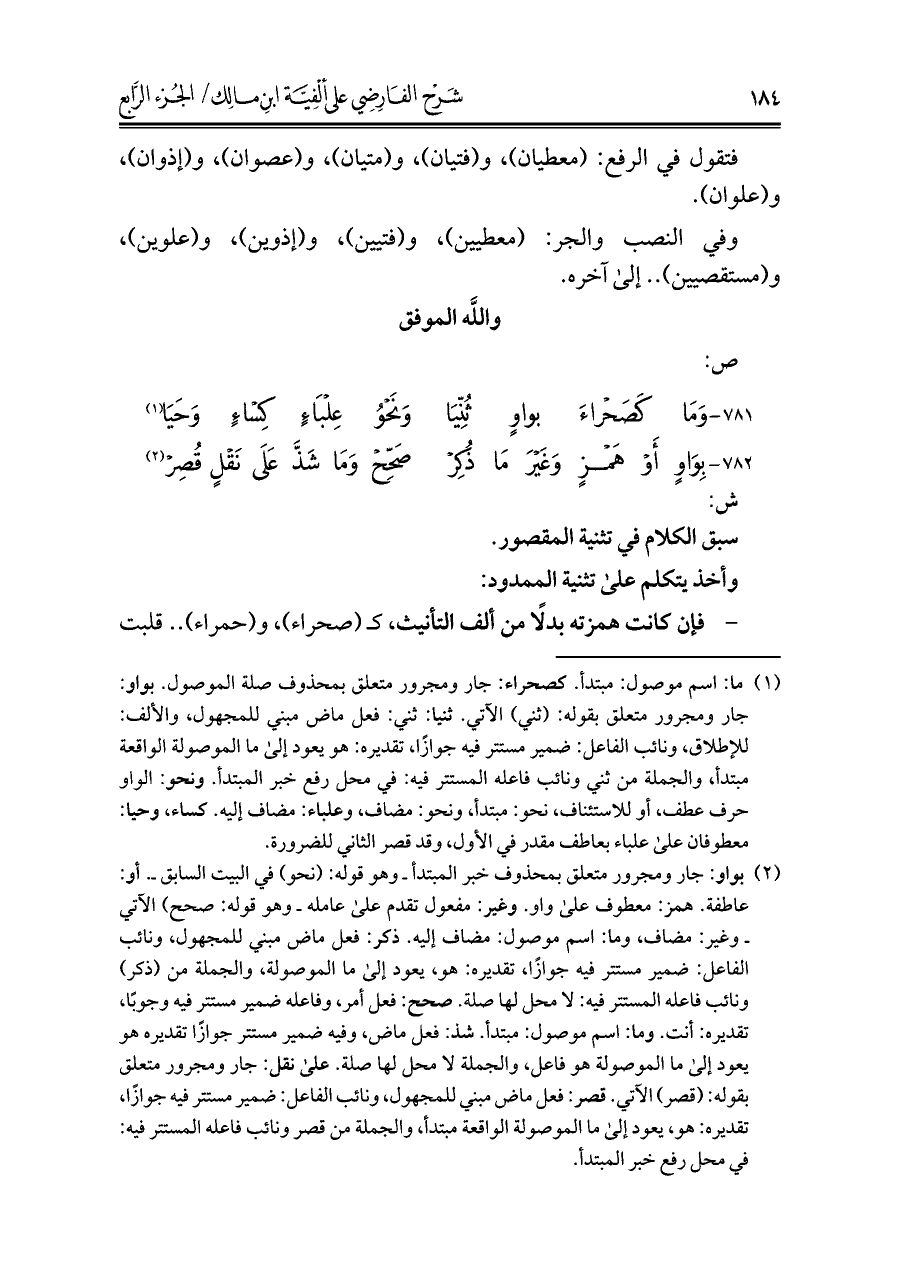 ١٨٤ شَرْح الفَارِضِي عَلى ألْفِيَّة ابنِ مَالِك / الجُزء الرَّابع
فتقول في الرفع: (معطيان)، و(فتيان)، و(متيان)، و(عصوان)، و(إذوان)،
و(علوان).
وفي النصب والجر: (معطيين)، و(فتيين)، و(إذوين)، و(علوين)،
و(مستقصيين).. إلىٰ آخره.
واللَّه الموفق
ص:
٧٨١-وَمَا كَصَحْراءَ بواوٍ ثُنِّيَا وَنَحْوُ عِلْبَاءٍ كِسَاءٍ وَحَيَا(١)
٧٨٢-بِوَاوٍ أَوْ هَمْزٍ وَغَيْرَ مَا ذُكِرْ صَحِّحْ وَمَا شَذَّ عَلَى نَقْلٍ قُصِرْ(٢)
ش:
سبق الكلام في تثنية المقصور.
وأخذ يتكلم علىٰ تثنية الممدود:
- فإن كانت همزته بدلًا من ألف التأنيث، كـ (صحراء)، و(حمراء).. قلبت
(١) ما: اسم موصول: مبتدأ. كصحراء: جار ومجرور متعلق بمحذوف صلة الموصول. بواو:
جار ومجرور متعلق بقوله: (ثني) الآتي. ثنيا: ثني: فعل ماض مبني للمجهول، والألف:
للإطلاق، ونائب الفاعل: ضمير مستتر فيه جوازًا، تقديره: هو يعود إلىٰ ما الموصولة الواقعة
مبتدأ، والجملة من ثني ونائب فاعله المستتر فيه: في محل رفع خبر المبتدأ. ونحو: الواو
حرف عطف، أو للاستئناف، نحو: مبتدأ، ونحو: مضاف، وعلباء: مضاف إليه. كساء، وحيا:
معطوفان علىٰ علباء بعاطف مقدر في الأول، وقد قصر الثاني للضرورة.
(٢) بواو: جار ومجرور متعلق بمحذوف خبر المبتدأ ـ وهو قوله: (نحو) في البيت السابق ـ. أو:
عاطفة. همز: معطوف علىٰ واو. وغير: مفعول تقدم علىٰ عامله ـ وهو قوله: صحح) الآتي
ـ وغير: مضاف، وما: اسم موصول: مضاف إليه. ذكر: فعل ماض مبني للمجهول، ونائب
الفاعل: ضمير مستتر فيه جوازًا، تقديره: هو، يعود إلىٰ ما الموصولة، والجملة من (ذكر)
ونائب فاعله المستتر فيه: لا محل لها صلة. صحح: فعل أمر، وفاعله ضمير مستتر فيه وجوبًا،
تقديره: أنت. وما: اسم موصول: مبتدأ. شذ: فعل ماض، وفيه ضمير مستتر جوازًا تقديره هو
يعود إلىٰ ما الموصولة هو فاعل، والجملة لا محل لها صلة. علىٰ نقل: جار ومجرور متعلق
بقوله: (قصر) الآتي. قصر: فعل ماض مبني للمجهول، ونائب الفاعل: ضمير مستتر فيه جوازًا،
تقديره: هو، يعود إلىٰ ما الموصولة الواقعة مبتدأ، والجملة من قصر ونائب فاعله المستتر فيه:
في محل رفع خبر المبتدأ.